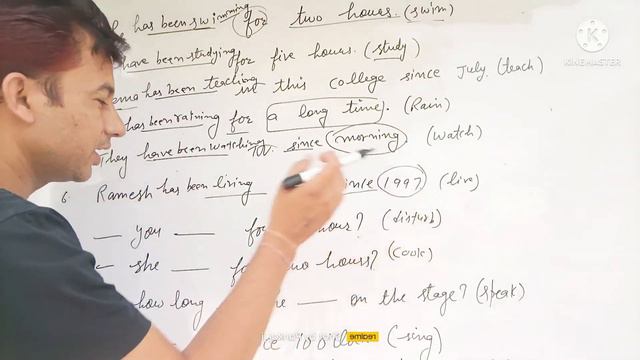 has been swimming for two hours. (swim)
have been studying for five hours. (study)
has been teaching in this college since July. (teach)
has been raining for a long time. (Rain)
They have been watching T.V. since morning. (watch)
6 Ramesh has been living since 1997 (live)
— you — hour? (disturb)
she — hours? (cook)
how long — on the stage? (speak)
(sing)
KINEMASTER
realme